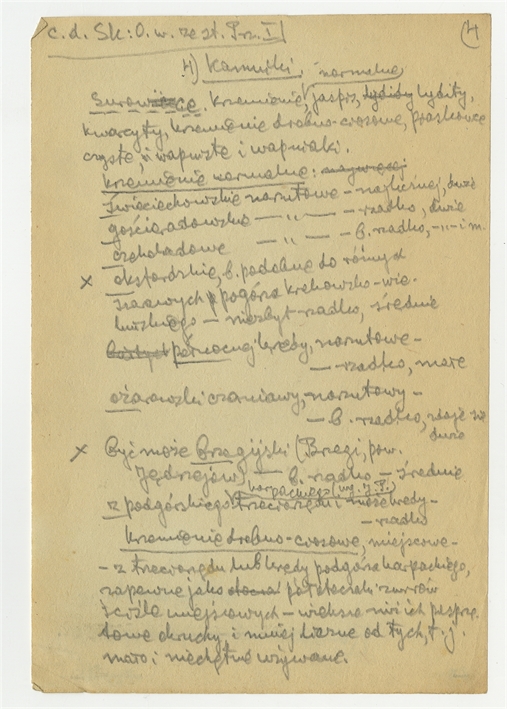 c. d. Sk: O. w. ze st. Prz. I
4
4) Kamyki
normalne,
Surowce. krzemienie, jaspis, lydity,
kwarcyty, krzemienie drobno-czosowe, piaskowce
czyste, i wapniste i wapniaki.
krzemienie normalne:
Świeciechowskie narzutowe – najliczniej, duże
gościeradowskie – „ – rzadko, duże
czekoladowe – „ – b. rzadko, – „ – i m.
x oksfordzkie, b. podobne do różnych
szarawych pogórza krakowsko-wie-
luńskiego – niezbyt rzadko, średnie
północnej kredy, narzutowe –
– rzadko, małe
ożarowski czerniawy, narzutowy –
– b. rzadko, zdaje się
duże
x Być może brzegijski (Brzegi, pow.
Jędrzejów) – b. rzadko – średnie
karpackiego
z podgórskiego trzeciorzędu i może kredy –
– rzadko
krzemienie drobno-czosowe, miejscowe –
– z trzeciorzędu lub kredy podgórza karpackiego,
zapewne jako półotoczaki żwirów
ściśle miejscowych – większe niż ich
towe okruchy, i mniej liczne od tych, t. j.
mało i niechętnie używane.